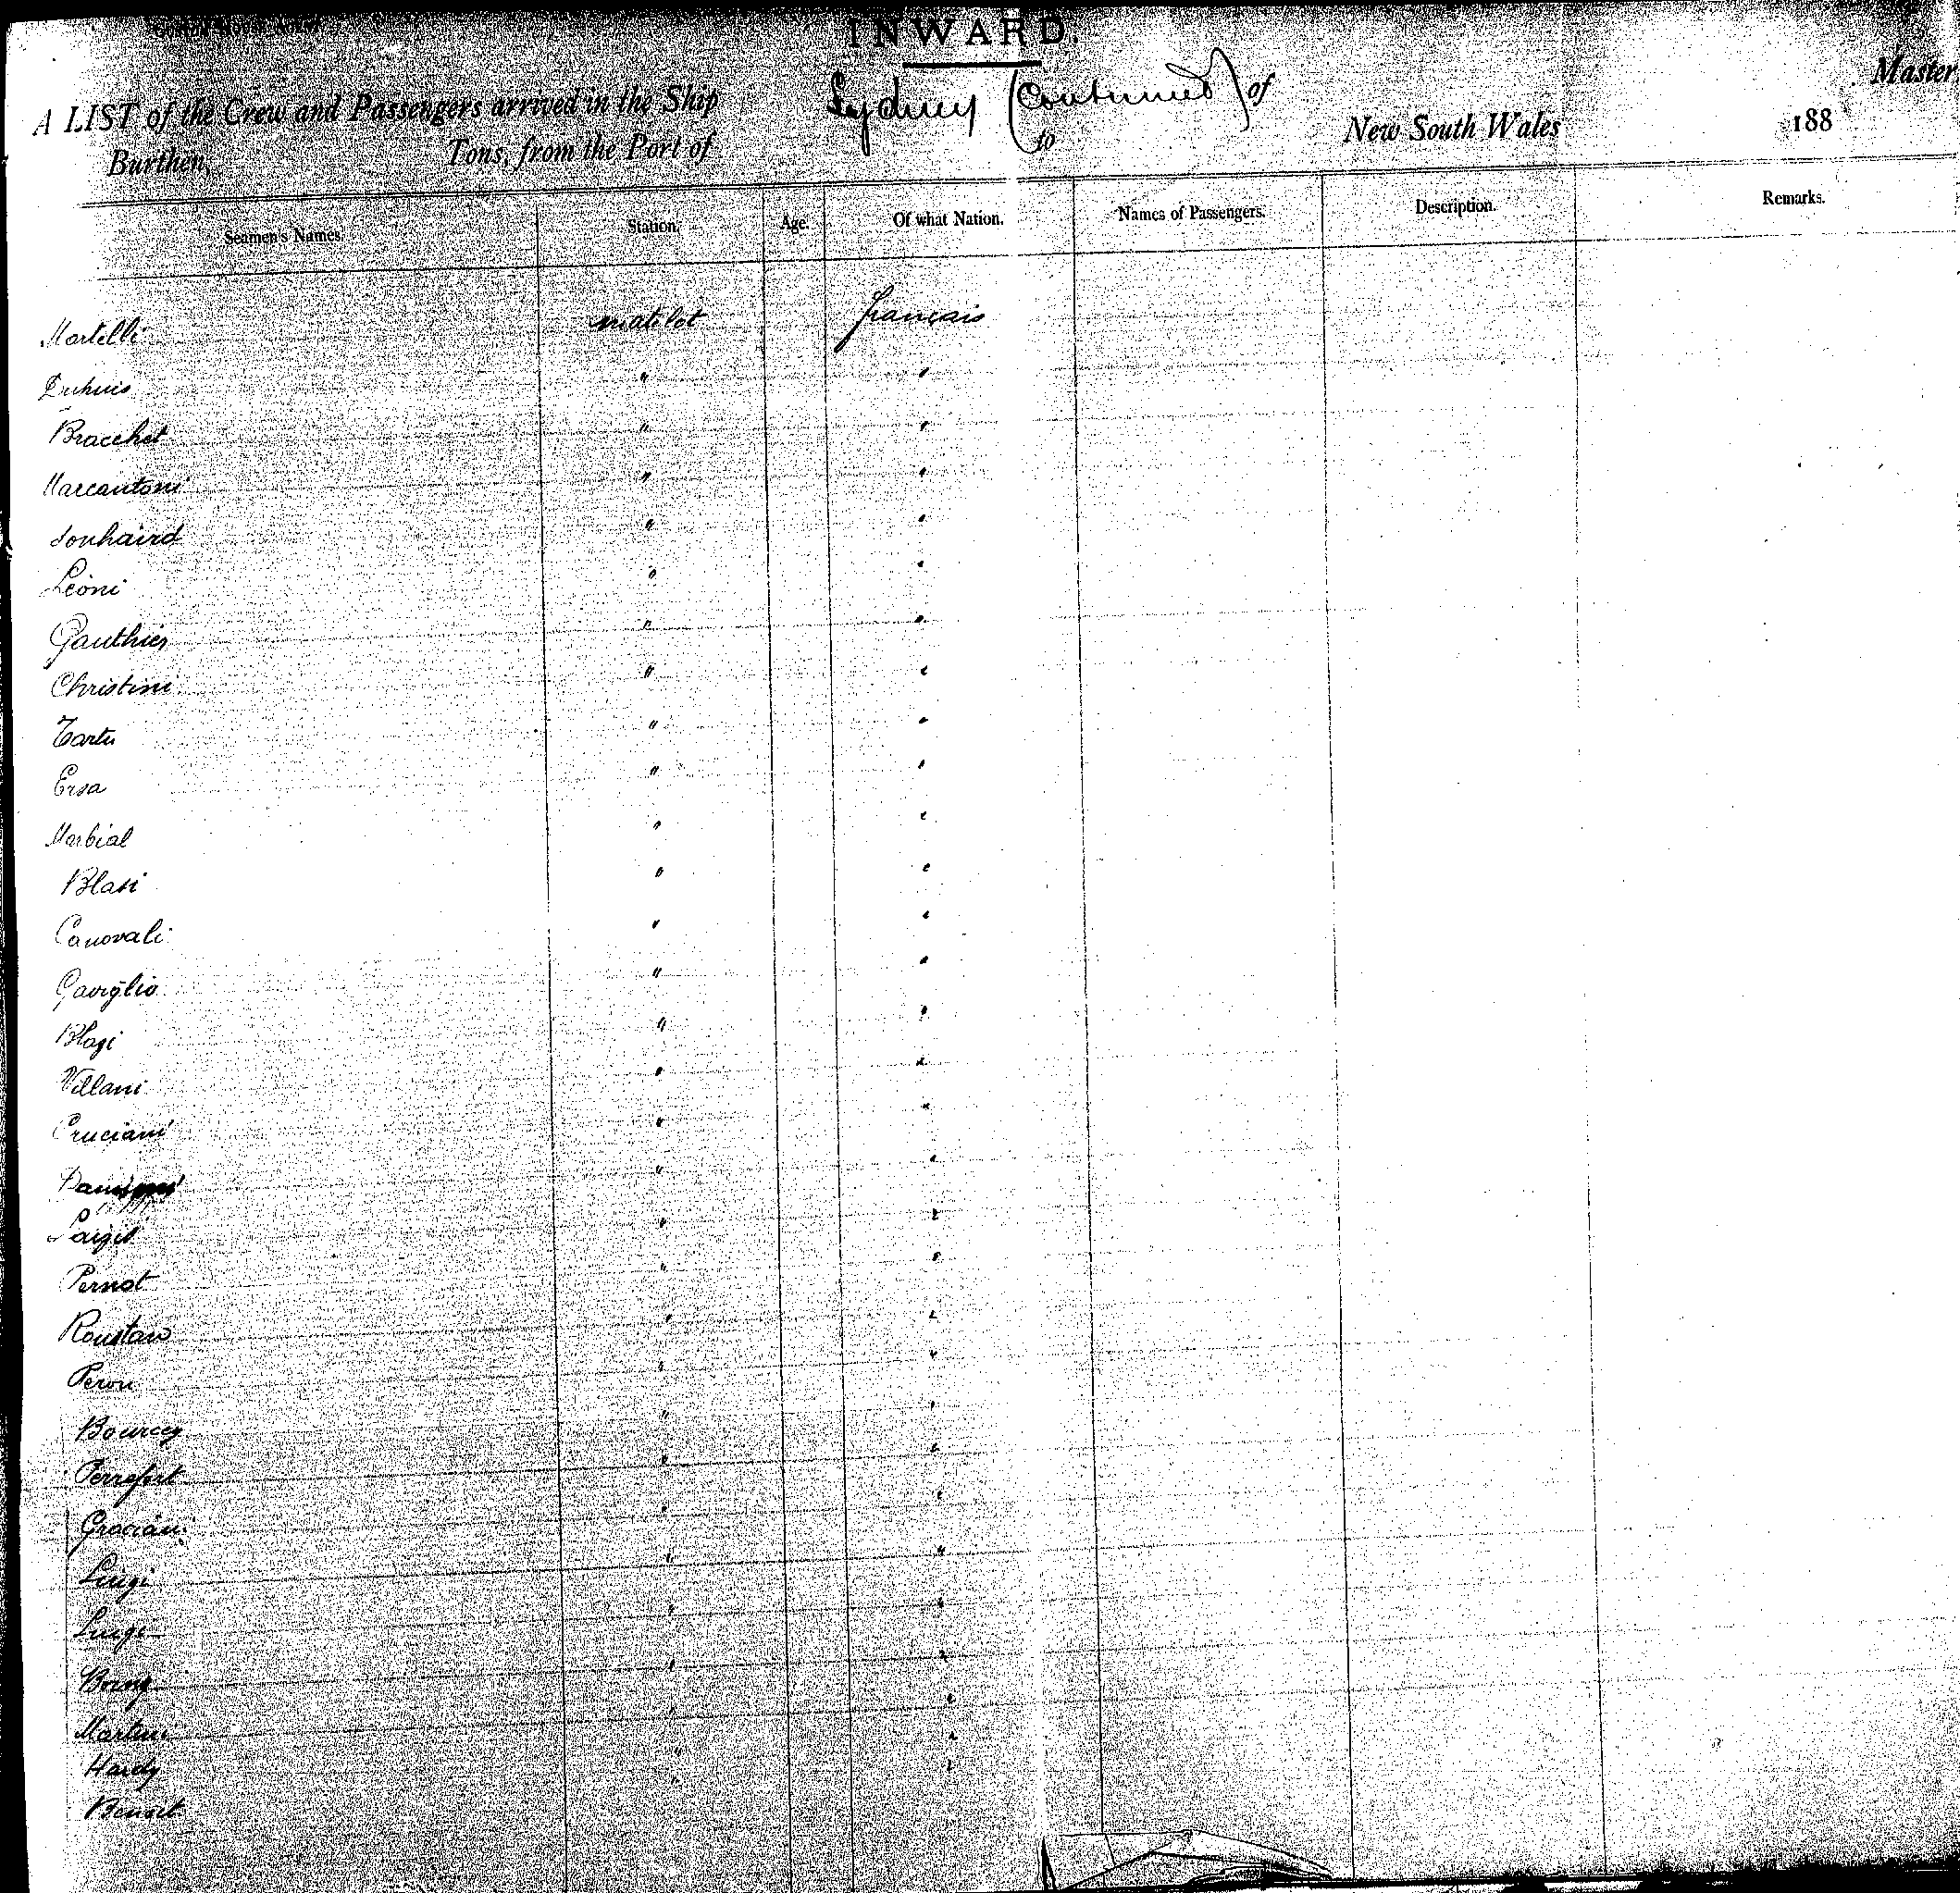 INWARD.
A LIST of the Crew and Passengers arrived in the Ship Sydney (Continued) of Master,
Burthen, Tons, from the Port of to New South Wales 188
Seamen's Names. Station. Age. Of what Nation. Names of Passengers. Description. Remarks.
Martelli matelot français
" "
Bracchet " "
Marcantoni " "
" "
Léoni " "
Gauthier " "
Christini " "
" "
Ersa " "
Marbial " "
Blasi " "
Canovali " "
Gaviglio " "
Blagi " "
Villani " "
Cruciani " "
" "
" "
Pernot " "
Roustan " "
Peron " "
Bourcey " "
Perrefort " "
Graciani " "
Luigi " "
Luigi " "
" "
Martini " "
Hardy " "
Benoit " "